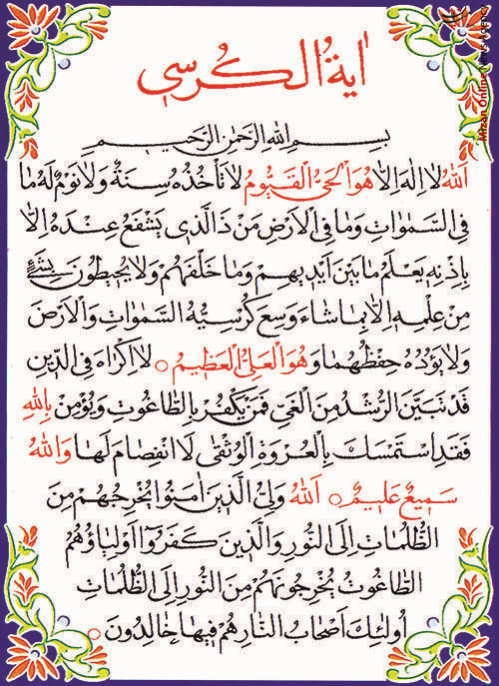 اٰيةُ الكُرسي
بِسمِ اللهِ الرَّحمٰنِ الرَّحيمِ
اَللهُ لا اِلٰهَ اِلاّ هُوَ الْحَيُّ الْقَيُّومُ لا تَأخُذُهُ سِنَةٌ وَلا نَوْمٌ لَهُ ما
فِي السَّمٰواتِ وَما فِي الْاَرْضِ مَنْ ذَا الَّذي يَشْفَعُ عِنْدَهُ اِلاّ
بِاِذْنِهِ يَعْلَمُ ما بَيْنَ اَيْديهِمْ وَما خَلْفَهُمْ وَلا يُحيطُونَ بِشَيْءٍ
مِنْ عِلْمِهِ اِلاّ بِما شاءَ وَسِعَ كُرْسِيُّهُ السَّمٰواتِ وَالْاَرْضَ
وَلا يَؤُدُهُ حِفْظُهُما وَهُوَ الْعَلِيُّ الْعَظيمُ ○ لا اِكْراهَ فِي الدّينِ
قَدْ تَبَيَّنَ الرُّشْدُ مِنَ الْغَيِّ فَمَنْ يَكْفُرْ بِالطّاغُوتِ وَيُؤْمِنْ بِاللهِ
فَقَدِ اسْتَمْسَكَ بِالْعُرْوَةِ الْوُثْقىٰ لَا انْفِصامَ لَها وَاللهُ
سَميعٌ عَليمٌ ○ اَللهُ وَلِيُّ الَّذينَ اٰمَنُوا يُخْرِجُهُمْ مِنَ
الظُّلُماتِ اِلَى النُّورِ وَالَّذينَ كَفَرُوا اَوْلِياؤُهُمُ
الطّاغُوتُ يُخْرِجُونَهُمْ مِنَ النُّورِ اِلَى الظُّلُماتِ
اُولٰئِكَ اَصْحابُ النّارِ هُمْ فيها خالِدُونَ ○
Mizan Online